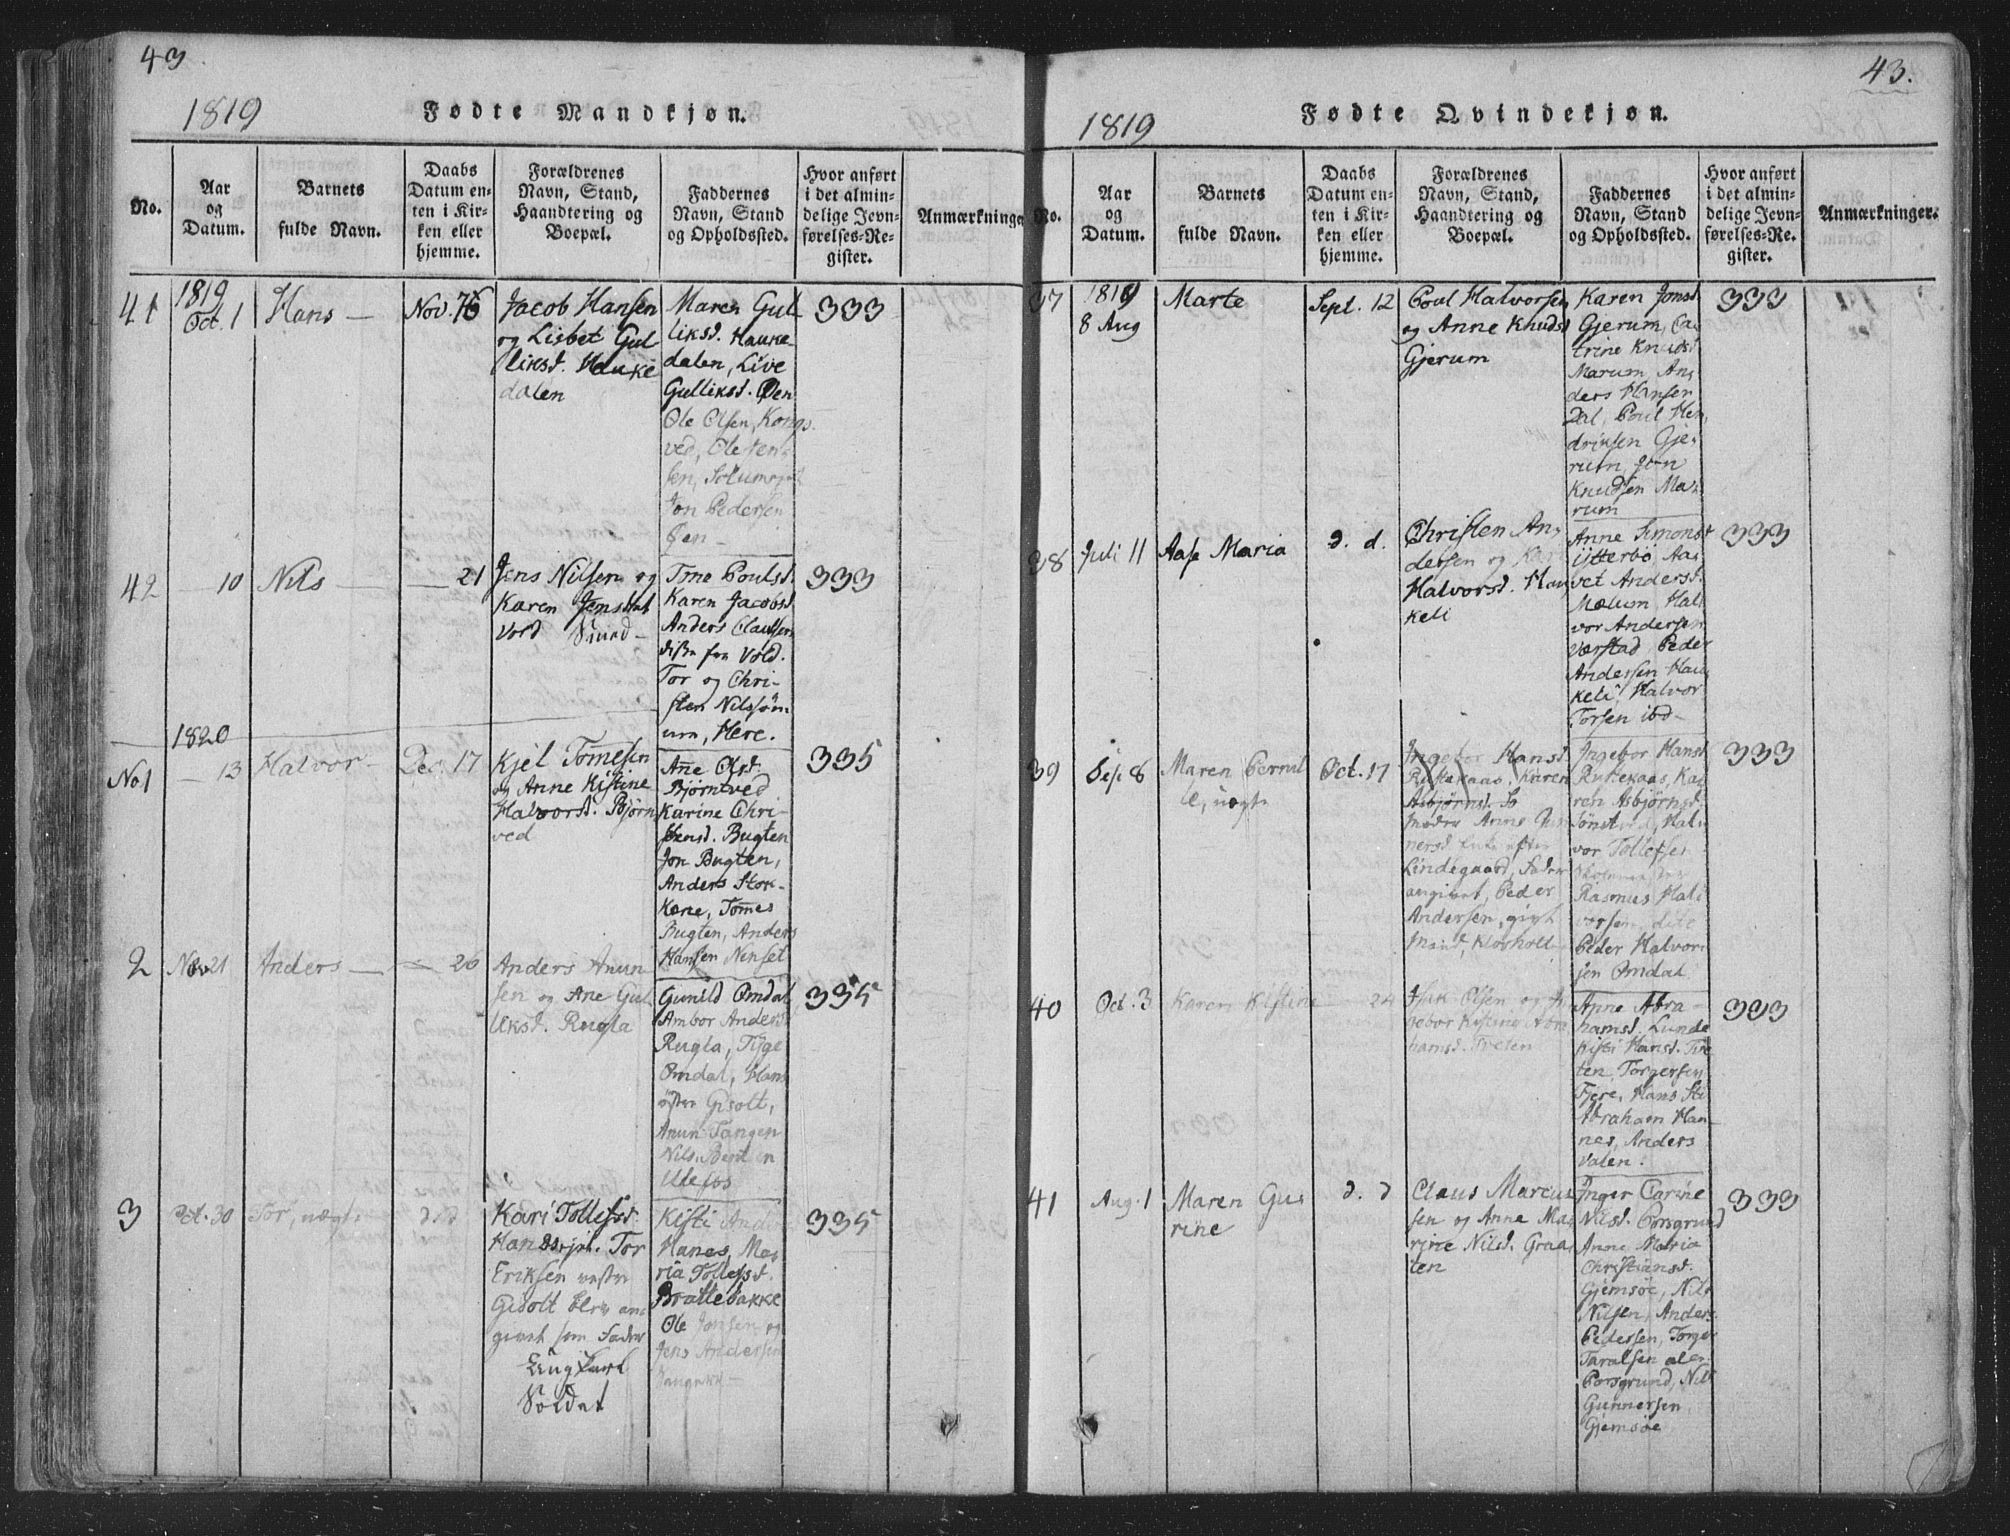 43
1819 Fødte Mandkjøn.
No.
Aar og Datum.
Barnets fulde Navn.
Daabs Datum enten i Kirken eller hjemme.
Forældrenes Navn, Stand, Haandtering og Boepæl.
Faddernes Navn, Stand og Opholdssted.
Hvor anført i det almindelige Jevnførelses-Register.
Anmærkninger
41
1819
Oct. 1
Hans —
Nov.
Jacob Hansen
og Lisbet Gul
liksd. Hauke
dalen
Maren Gul
liksd. Hauke
dalen, Live
Gulliksd. Øen
Ole Olsen, Kongs
ved, Ole
sen,
Jon Pedersen
Øen —
333
42
— 10
Nils —
— 21
Jens Nilsen og
Karen Jensdat
Vord
Tone Poulsd.
Karen Jacobsd.
Anders Clausen
disse fra Vold.
Tor og Chri-
sten Nilssøn
um, Here.
333
1820
No 1
— 13
Halvor —
Dec. 17
Kjel Tomesen
og Anne Kistine
Halvorsd. Bjørn
ved
Ane Olsd.
Bjørntved
Karine Chri-
stensd. Bugten
Jon Bugten,
Anders Stok-
kene, Tomes
Bugten, Anders
Hansen Nenset
335
2
Nov 21
Anders —
— 26
Anders Anun
sen og Ane Gul
liksd. Rugla
Gunild Omdal
Ambor Andersd
Rugla,
Omdal, Hans
østre Gisolt,
Anun Tangen
Nils
335
3
Oct. 30
Tor, uægte
d. d
Kari Tollefsd.
Tor
Eriksen vestre
Gisolt blev an-
givet som Fader
Ungkarl
Soldat
Kisti
Hanes, Ma-
ria Tollefsd.
Brattebakke
Ole Jonsen og
Jens Andersen
335
43.
1819 Fødte Qvindekjøn.
No.
Aar og Datum.
Barnets fulde Navn.
Daabs Datum enten i Kirken eller hjemme.
Forældrenes Navn, Stand, Haandtering og Boepæl.
Faddernes Navn, Stand og Opholdssted.
Hvor anført i det almindelige Jevnførelses-Register.
Anmærkninger.
37
1819
8 Aug
Marte
Sept. 12
Poul Halvorsen
og Anne Knudsd
Gjerum
Karen Jonsd.
Gjerum, Ca
trine Knudsd.
Marum, An
ders Hansen
Dal, Poul Hen
driksen Gje-
rum, Jon
Knudsen Ma-
rum
333
38
Juli 11
Aase Maria
d. d.
Christen An
dersen og
Halvorsd. Hau
keli
Anne Simonsd
Ytterbø, Aa
vet Andersd.
Mælum, Hal
vor Andersen
Værstad, Peder
Andersen Hau
keli, Halvor
Torsen ibd —
333
39
Sep 8
Maren Pernil
le, uægte
Oct. 17
Ingebor Hansd.
Karen
Asbjørnsd.
Moder Anne Gun
nersd
Lindegaard, Fader
angivet, Peder
Andersen, gift
Mand, Klovholt
Ingebor Hansd
Ka
ren Asbjørnsd.
Hal
vor Tollefsen
Rasmus Hal
vorsen
Peder Halvor
sen Omdal
333
40
Oct. 3
Karen Kistine
— 24
Isak Olsen og In
gebor Kistine Abra
hamsd. Tveten
Anne Abra-
hamsd. Lunde
Kisti Hansd. Tve
ten, Torgersen
Fjere, Hans Sti
Abraham Han-
nes, Anders
Valen.
333
41
Aug. 1
Maren Gu
rine
d. d
Claus Marcus
sen og Anne Ma
rine Nilsd. Graa
ten
Inger Carine
Nilsd. Porsgrund
Anne Maria
Christiansd.
Gjemsøe, Nils
Nilsen, Anders
Pedersen, Torger
Taralsen alle
Porsgrund, Nils
Gunnersen
Gjemsøe
333